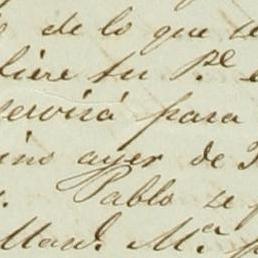 de lo que se
liere tu P.e
servirá para
ino ayer de
Pablo se
Man.l M.a